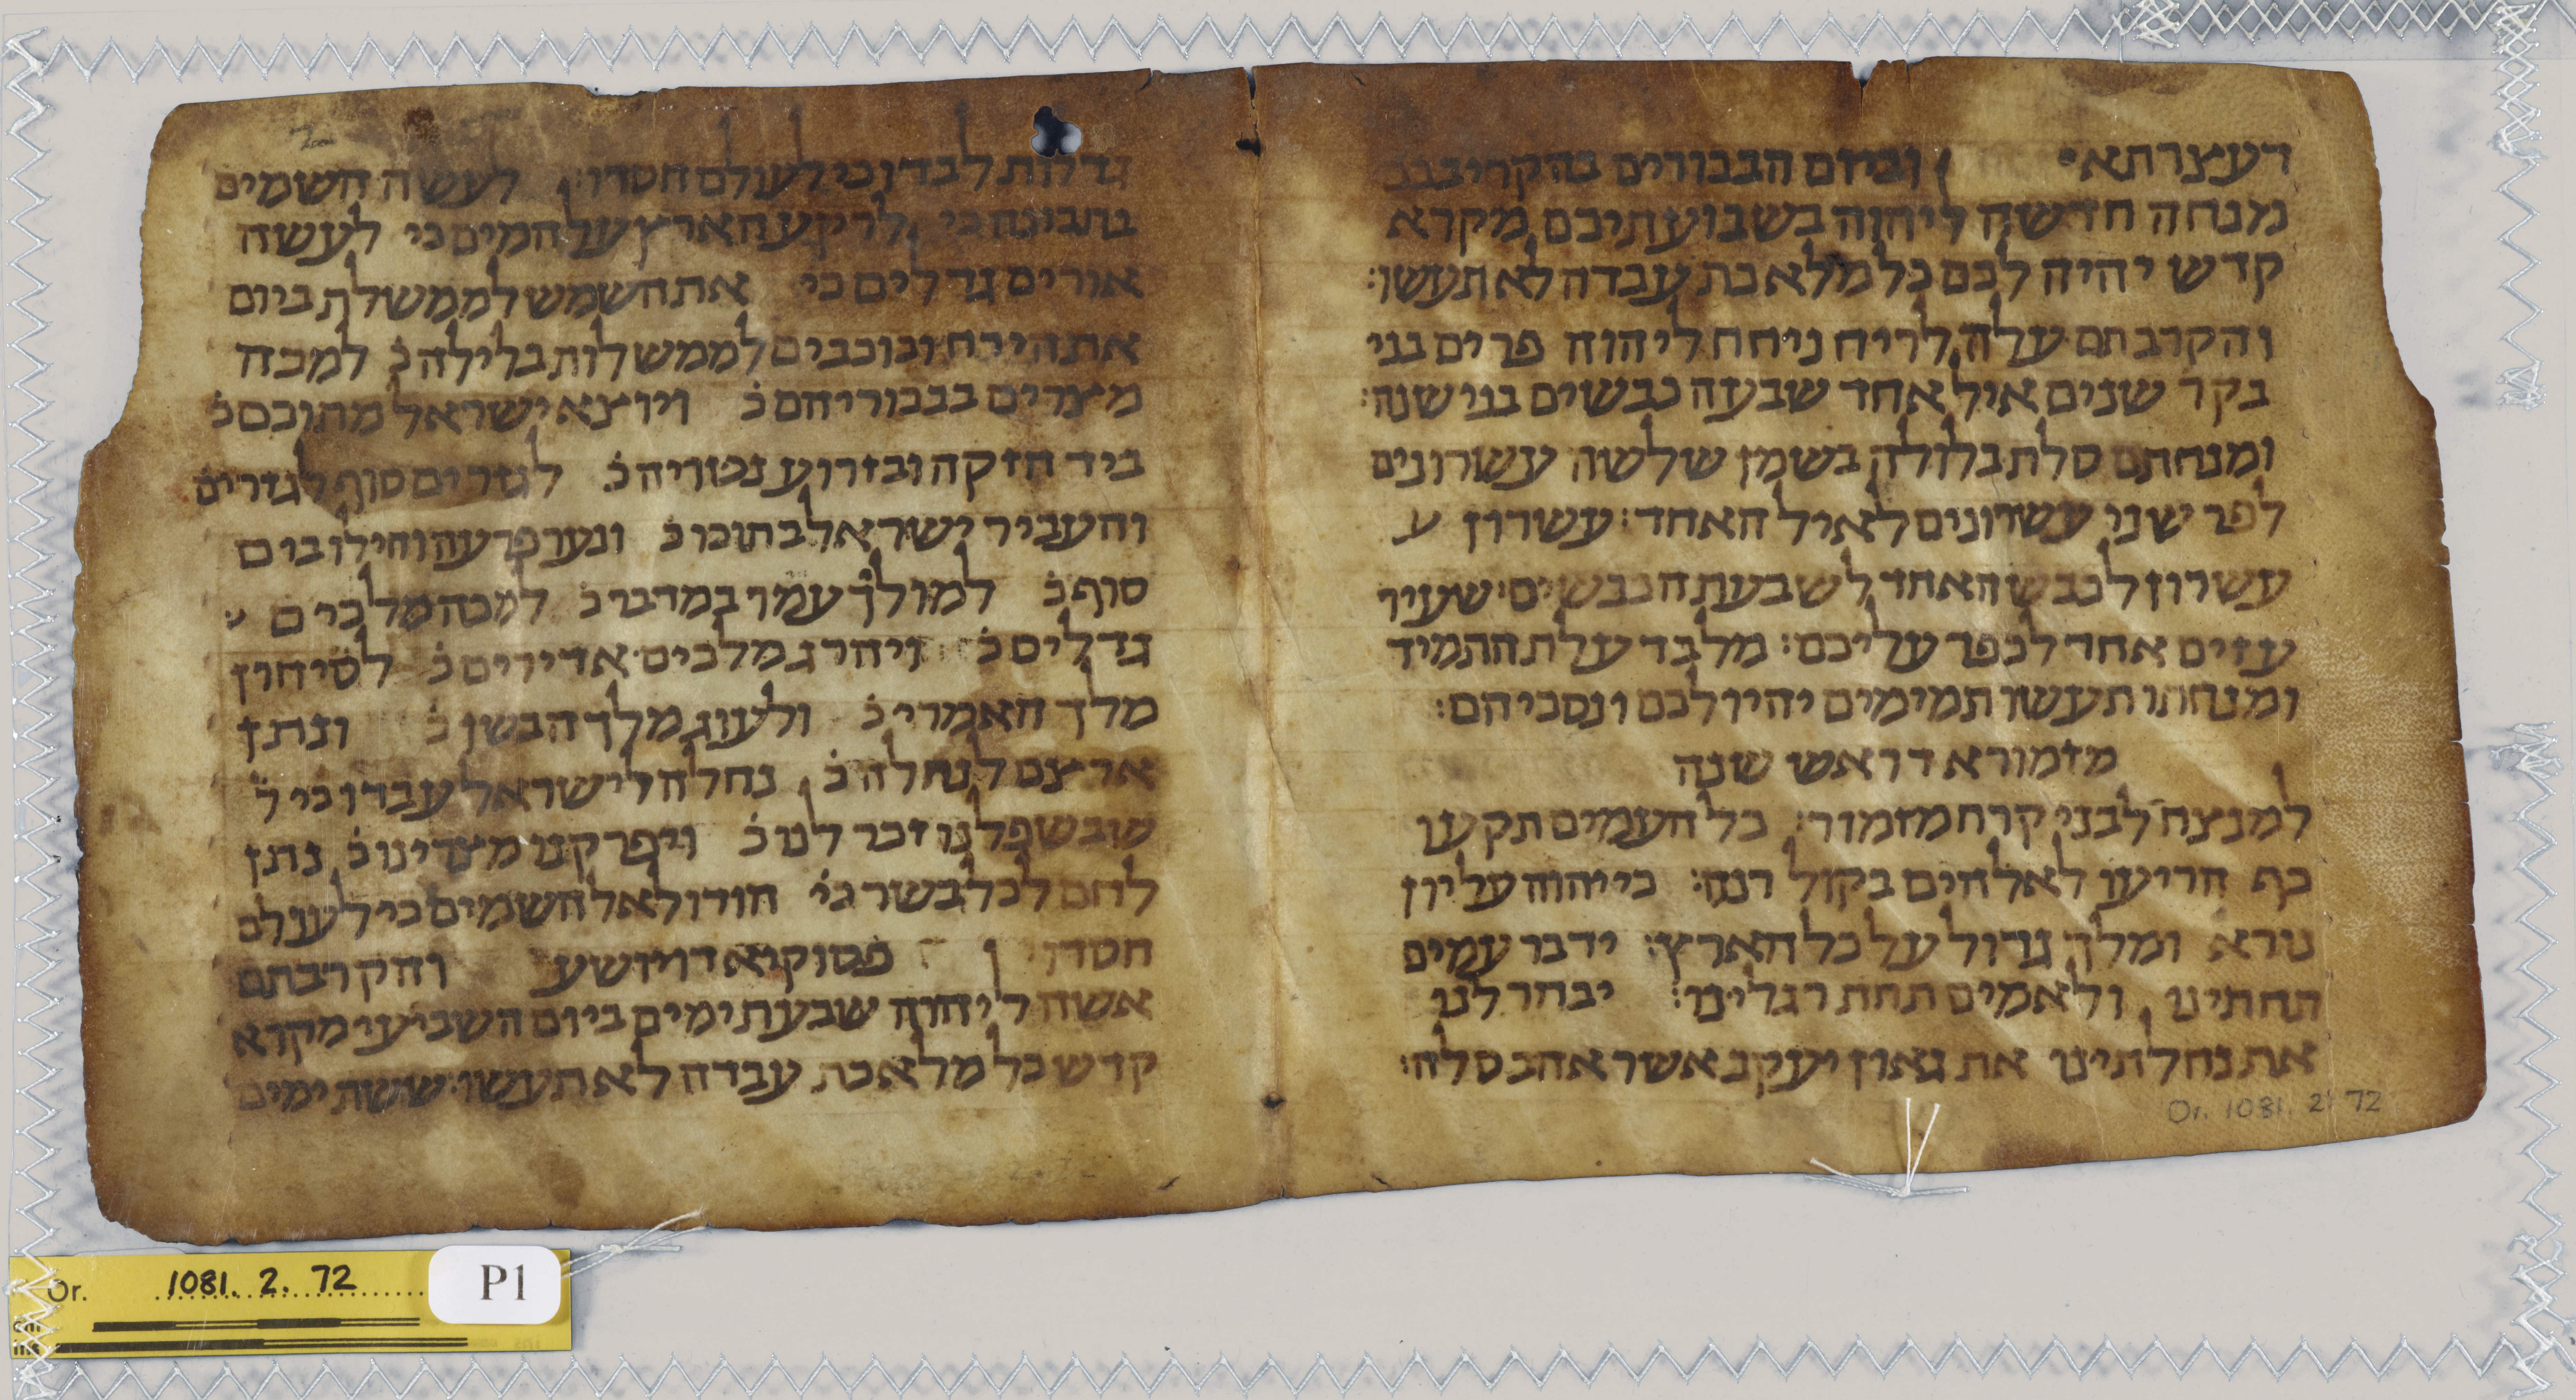 דעצרתא וביום הבכורים בהקריבכ
מנחה חדשה ליהוה בשבועתיכם מקרא
קדש יהיה לכם כל מלאכת עבדה לא תעשו:
והקרבתם עלה לריח ניחח ליהוה פרים בני
בקר שנים איל אחד שבעה כבשים בני שנה:
ומנחתם סלת בלולה בשמן שלשה עשרונים
לפר שני עשרונים לאיל האחד: עשרון ע
עשרון לכבש האחד לשבעת הכבשים: שעיר
עזים אחד לכפר עליכם: מלבד עלת התמיד
ומנחתו תעשו תמימים יהיו לכם ונסכיהם:
מזמורא דראש שנה
למנצח לבני קרח מזמור: כל העמים תקעו
כף הריעו לאלהים בקול רנה: כי יהוה עליון
נורא ומלך גדול על כל הארץ: ידבר עמים
תחתינו ולאמים תחת רגלינו: יבחר לנו
את נחלתינו את גאון יעקב אשר אהב סלה:
גדלות לבדו כי לעולם חסדו: לעשה השמים
בתבונה כי לרקע הארץ על המים כי לעשה
אורים גדלים כי את השמש לממשלת ביום
את הירח וכוכבים לממשלות בלילה כ למכה
מצרים בבכוריהם כ ויוצא ישראל מתוכם כ
ביד חזקה ובזרוע נטויה כ לגזר ים סוף לגזרים
והעביר ישראל בתוכו כ ונער פרעה וחילו בים
סוף כ למוליך עמו במדבר כ למכה מלכים
גדלים כ ויהרג מלכים אדירים כ לסיחון
מלך האמרי כ ולעוג מלך הבשן כ ונתן
ארצם לנחלה כ נחלה לישראל עבדו כי ל
שבשפלנו זכר לנו כ ויפרקנו מצרינו כ נתן
לחם לכל בשר כי הודו לאל השמים כי לעולם
חסדו פסוקיא דיושע והקרבתם
אשה ליהוה שבעת ימים ביום השביעי מקרא
קדש כל מלאכת עבדה לא תעשו: ששת ימים
Or. 1081. 2. 72
Or. 1081. 2. 72
P1
cm
ins